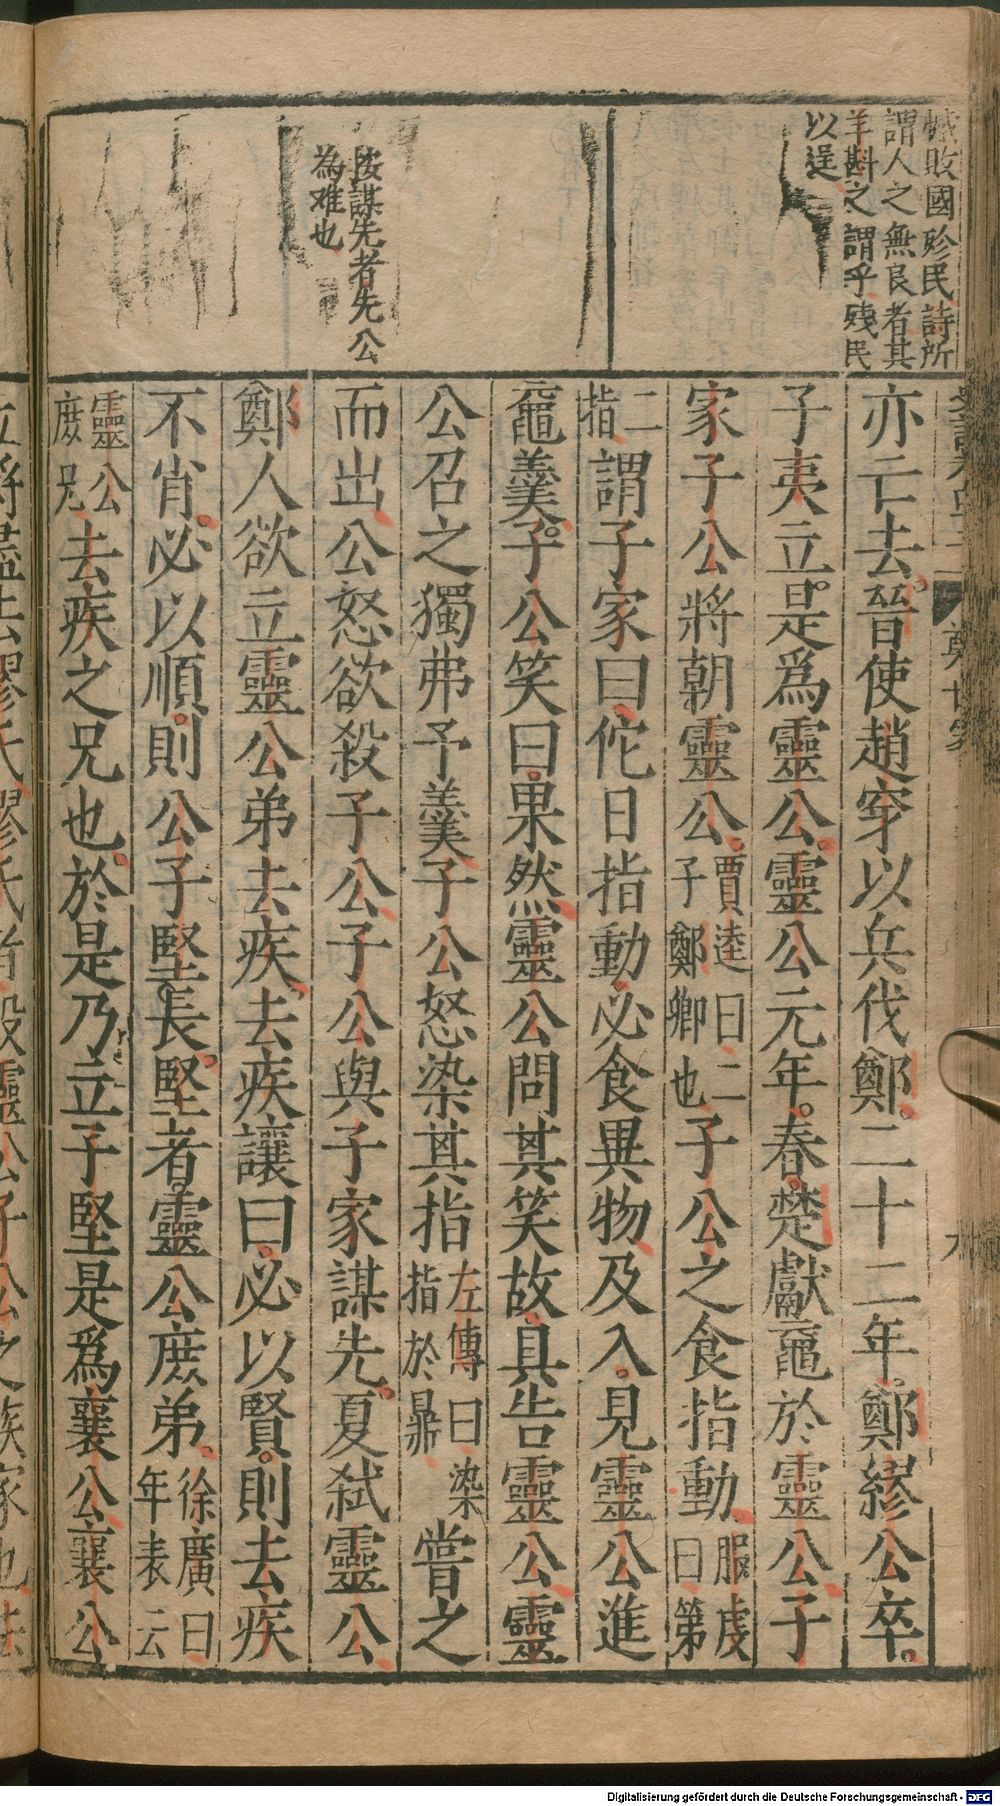 憾敗國殄民詩所
謂人之無良者其
羊斟之謂乎殘民
以逞
按謀先者先公
為难也
亦亡去晉使趙穿以兵伐鄭二十二年鄭繆公卒
子夷立是爲靈公靈公元年春楚獻黿於靈公子
家子公將朝靈公賈逵曰二子鄭卿也子公之食指動服虔曰第
二指謂子家曰佗日指動必食異物及入見靈公進
黿羹子公笑曰果然靈公問其笑故具告靈公靈
公召之獨弗予羹子公怒染其指左傳曰染指於鼎嘗之
而出公怒欲殺子公子公與子家謀先夏弒靈公
鄭人欲立靈公弟去疾去疾讓曰必以賢則去疾
不肖必以順則公子堅長堅者靈公庶弟徐廣曰年表云
靈公庶兄去疾之兄也於是乃立子堅是爲襄公襄公
鄭世家
九
Digitalisierung gefördert durch die Deutsche Forschungsgemeinschaft - DFG